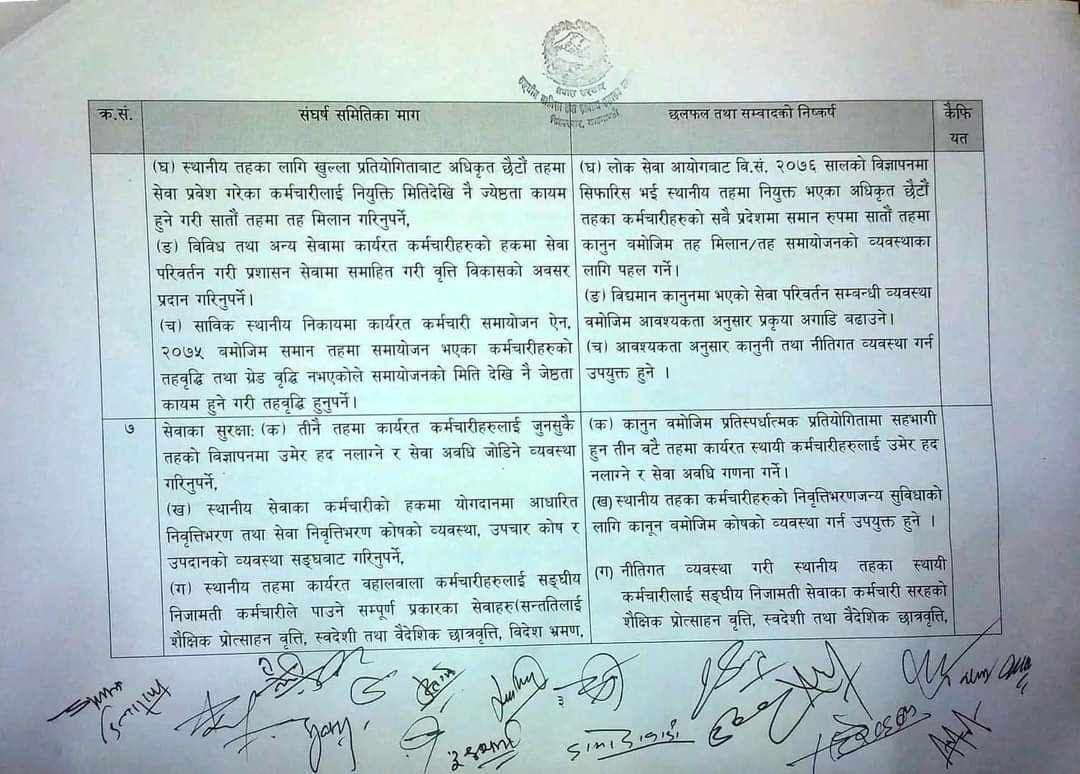 नेपाल सरकार
क्र.सं.
संघर्ष समितिका माग
छलफल तथा सम्वादको निष्कर्ष
कैफि
यत
(घ) स्थानीय तहका लागि खुल्ला प्रतियोगिताबाट अधिकृत छैटौँ तहमा
सेवा प्रवेश गरेका कर्मचारीलाई नियुक्ति मितिदेखि नै ज्येष्ठता कायम
हुने गरी सातौँ तहमा तह मिलान गरिनुपर्ने,
(ङ) विविध तथा अन्य सेवामा कार्यरत कर्मचारीहरुको हकमा सेवा
परिवर्तन गरी प्रशासन सेवामा समाहित गरी वृत्ति विकासको अवसर
प्रदान गरिनुपर्ने।
(च) साविक स्थानीय निकायमा कार्यरत कर्मचारी समायोजन ऐन,
२०७५ बमोजिम समान तहमा समायोजन भएका कर्मचारीहरुको
तहवृद्धि तथा ग्रेड वृद्धि नभएकोले समायोजनको मिति देखि नै जेष्ठता
कायम हुने गरी तहवृद्धि हुनुपर्ने।
(घ) लोक सेवा आयोगवाट वि.सं. २०७६ सालको विज्ञापनमा
सिफारिस भई स्थानीय तहमा नियुक्त भएका अधिकृत छैटौँ
तहका कर्मचारीहरुको सवै प्रदेशमा समान रुपमा सातौँ तहमा
कानुन वमोजिम तह मिलान/तह समायोजनको व्यवस्थाका
लागि पहल गर्ने।
(ङ) विद्यमान कानुनमा भएको सेवा परिवर्तन सम्बन्धी व्यवस्था
वमोजिम आवश्यकता अनुसार प्रकृया अगाडि बढाउने।
(च) आवश्यकता अनुसार कानुनी तथा नीतिगत व्यवस्था गर्न
उपयुक्त हुने ।
७
सेवाका सुरक्षा: (क) तीनै तहमा कार्यरत कर्मचारीहरुलाई जुनसुकै
तहको विज्ञापनमा उमेर हद नलाग्ने र सेवा अवधि जोडिने व्यवस्था
गरिनुपर्ने,
(ख) स्थानीय सेवाका कर्मचारीको हकमा योगदानमा आधारित
निवृत्तिभरण तथा सेवा निवृत्तिभरण कोषको व्यवस्था, उपचार कोष र
उपदानको व्यवस्था सङ्घवाट गरिनुपर्ने,
(ग) स्थानीय तहमा कार्यरत वहालवाला कर्मचारीहरुलाई सङ्घीय
निजामती कर्मचारीले पाउने सम्पूर्ण प्रकारका सेवाहरु(सन्ततिलाई
शैक्षिक प्रोत्साहन वृत्ति, स्वदेशी तथा वैदेशिक छात्रवृत्ति, विदेश भ्रमण,
(क) कानुन वमोजिम प्रतिस्पर्धात्मक प्रतियोगितामा सहभागी
हुन तीन वटै तहमा कार्यरत स्थायी कर्मचारीहरुलाई उमेर हद
नलाग्ने र सेवा अवधि गणना गर्ने।
(ख) स्थानीय तहका कर्मचारीहरुको निवृत्तिभरणजन्य सुविधाको
लागि कानून वमोजिम कोषको व्यवस्था गर्न उपयुक्त हुने ।
(ग) नीतिगत व्यवस्था गरी स्थानीय तहका स्थायी
कर्मचारीलाई सङ्घीय निजामती सेवाका कर्मचारी सरहको
शैक्षिक प्रोत्साहन वृत्ति, स्वदेशी तथा वैदेशिक छात्रवृत्ति,